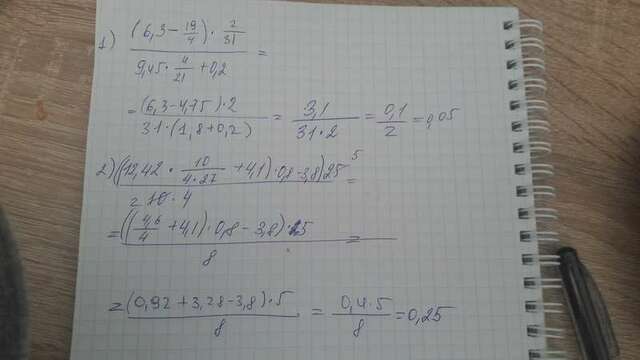 1) ((6,3 - 19/4) · 2/31) / (9,45 · 4/21 + 0,2) =
= ((6,3 - 4,75) · 2) / (31 · (1,8 + 0,2)) = 3,1 / (31 · 2) = 0,1 / 2 = 0,05
2) ((12,42 · 10 / (4 · 27) + 4,1) · 0,8 - 3,8) 25 5 / (2 10 · 4) =
= ((4,6/4 + 4,1) · 0,8 - 3,8) · 5 / 8 =
= (0,92 + 3,28 - 3,8) · 5 / 8 = 0,4 · 5 / 8 = 0,25